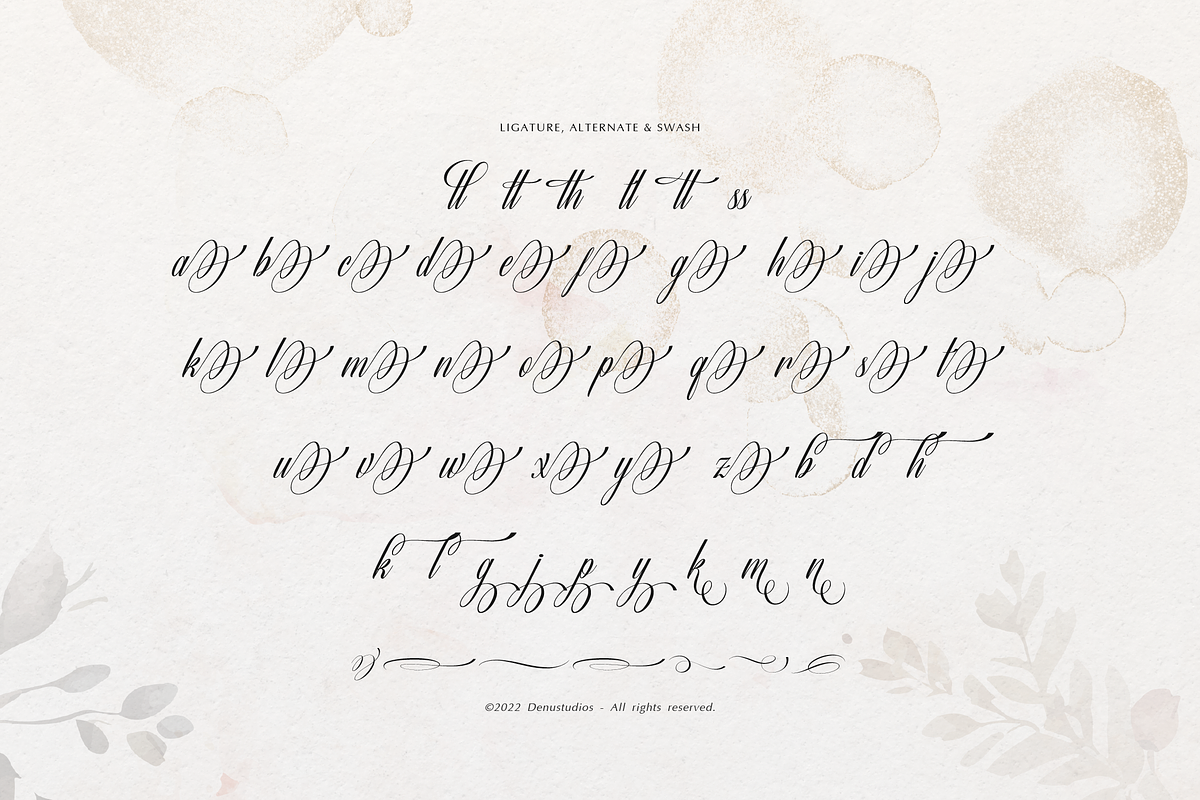 LIGATURE, ALTERNATE & SWASH
tt tt th tt tt ss
a b c d e f g h i j
k l m n o p q r s t
u v w x y z b d h
k l g j p y k m n
©2022 Denustudios - All rights reserved.